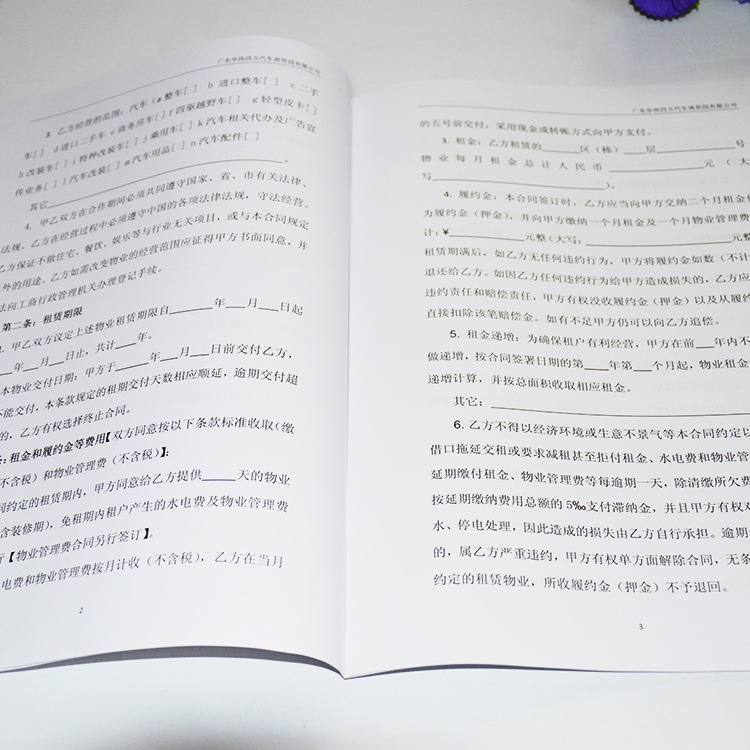 广东华伟四方汽车商贸园有限公司
3. 乙方经营的范围：汽车（a 整车[ ] b 进口整车[ ] c 二手
车[ ] d 进口二手车 e 商务房车[ ] f 四驱越野车[ ] g 轻型皮卡[ ]
h 改装车[ ] i 特种改装车[ ] j 乘用车[ ] k 汽车相关代办及广告宣
传业务[ ] l 汽车改装[ ] m 汽车用品[ ] n 汽车配件[ ]
其它
4. 甲乙双方在合作期间必须共同遵守国家、省、市有关法律、
法规，乙方在经营过程中必须遵守中国的各项法律法规，守法经营。
乙方保证不做住宅、餐饮、娱乐等与行业无关项目，或与本合同规定
外的用途。乙方如需改变物业的经营范围应征得甲方书面同意，并
法向工商行政管理机关办理登记手续。
第二条：租赁期限
甲乙双方议定上述物业租赁期限自____年__月__日起
__年__月__日止，共计__年。
本物业交付日期：甲方于____年__月__日前交付乙方，
不能交付，本条款规定的租期交付天数相应顺延，逾期交付超
的，乙方有权选择终止合同。
：租金和履约金等费用【双方同意按以下条款标准收取（缴
不含税）和物业管理费（不含税）】：
同约定的租赁期内，甲方同意给乙方提供____天的物业
含装修期），免租期内租户产生的水电费及物业管理费
行【物业管理费合同另行签订】。
电费和物业管理费按月计收（不含税），乙方在当月
2
广东华伟四方汽车商贸园有限公司
的五号前交付，采用现金或转帐方式向甲方支付。
3. 租金：乙方租赁的____区（栋）____层____号
物业每月租金总计人民币____元（大
写____）。
4. 履约金：本合同签订时，乙方应当向甲方交纳二个月租金作
为履约金（押金），并向甲方缴纳一个月租金及一个月物业管理费
计：¥____元整（大写：____元整
租赁期满后，如乙方无任何违约行为，甲方将履约金如数（不计
退还给乙方。如因乙方任何违约行为给甲方造成损失的，乙方应
违约责任和赔偿责任，甲方有权没收履约金（押金）以及从履约
直接扣除该笔赔偿金。如有不足甲方仍可以向乙方追偿。
5. 租金递增：为确保租户有利经营，甲方在前__年内不
做递增，按合同签署日期的第__年第__个月起，物业租金
递增计算，并按总面积收取相应租金。
其它：
6. 乙方不得以经济环境或生意不景气等本合同约定以
借口拖延交租或要求减租甚至拒付租金、水电费和物业管
延期缴付租金、物业管理费等每逾期一天，除清缴所欠费
按延期缴纳费用总额的5‰支付滞纳金，并且甲方有权对
水、停电处理，因此造成的损失由乙方自行承担。逾期
的，属乙方严重违约，甲方有权单方面解除合同，无条
约定的租赁物业，所收履约金（押金）不予退回。
3